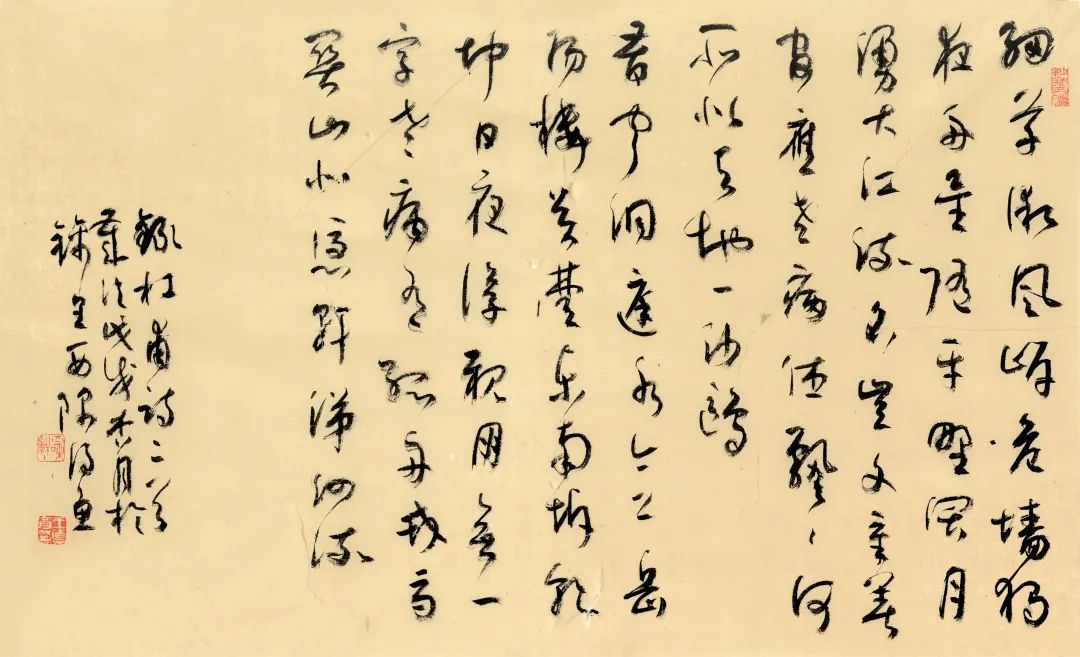 細草微風岸危墙獨
夜舟星隨平野闊月
湧大江流名豈文章著
官應老病休飄〻何
所似天地一沙鷗
昔聞洞庭水今上岳
陽樓吴楚東南坼乾
坤日夜浮親朋無一
字老病有孤舟戎馬
關山北憑軒涕泗流
録杜甫詩二首
歲次戊戌杏月於
錦里西隅